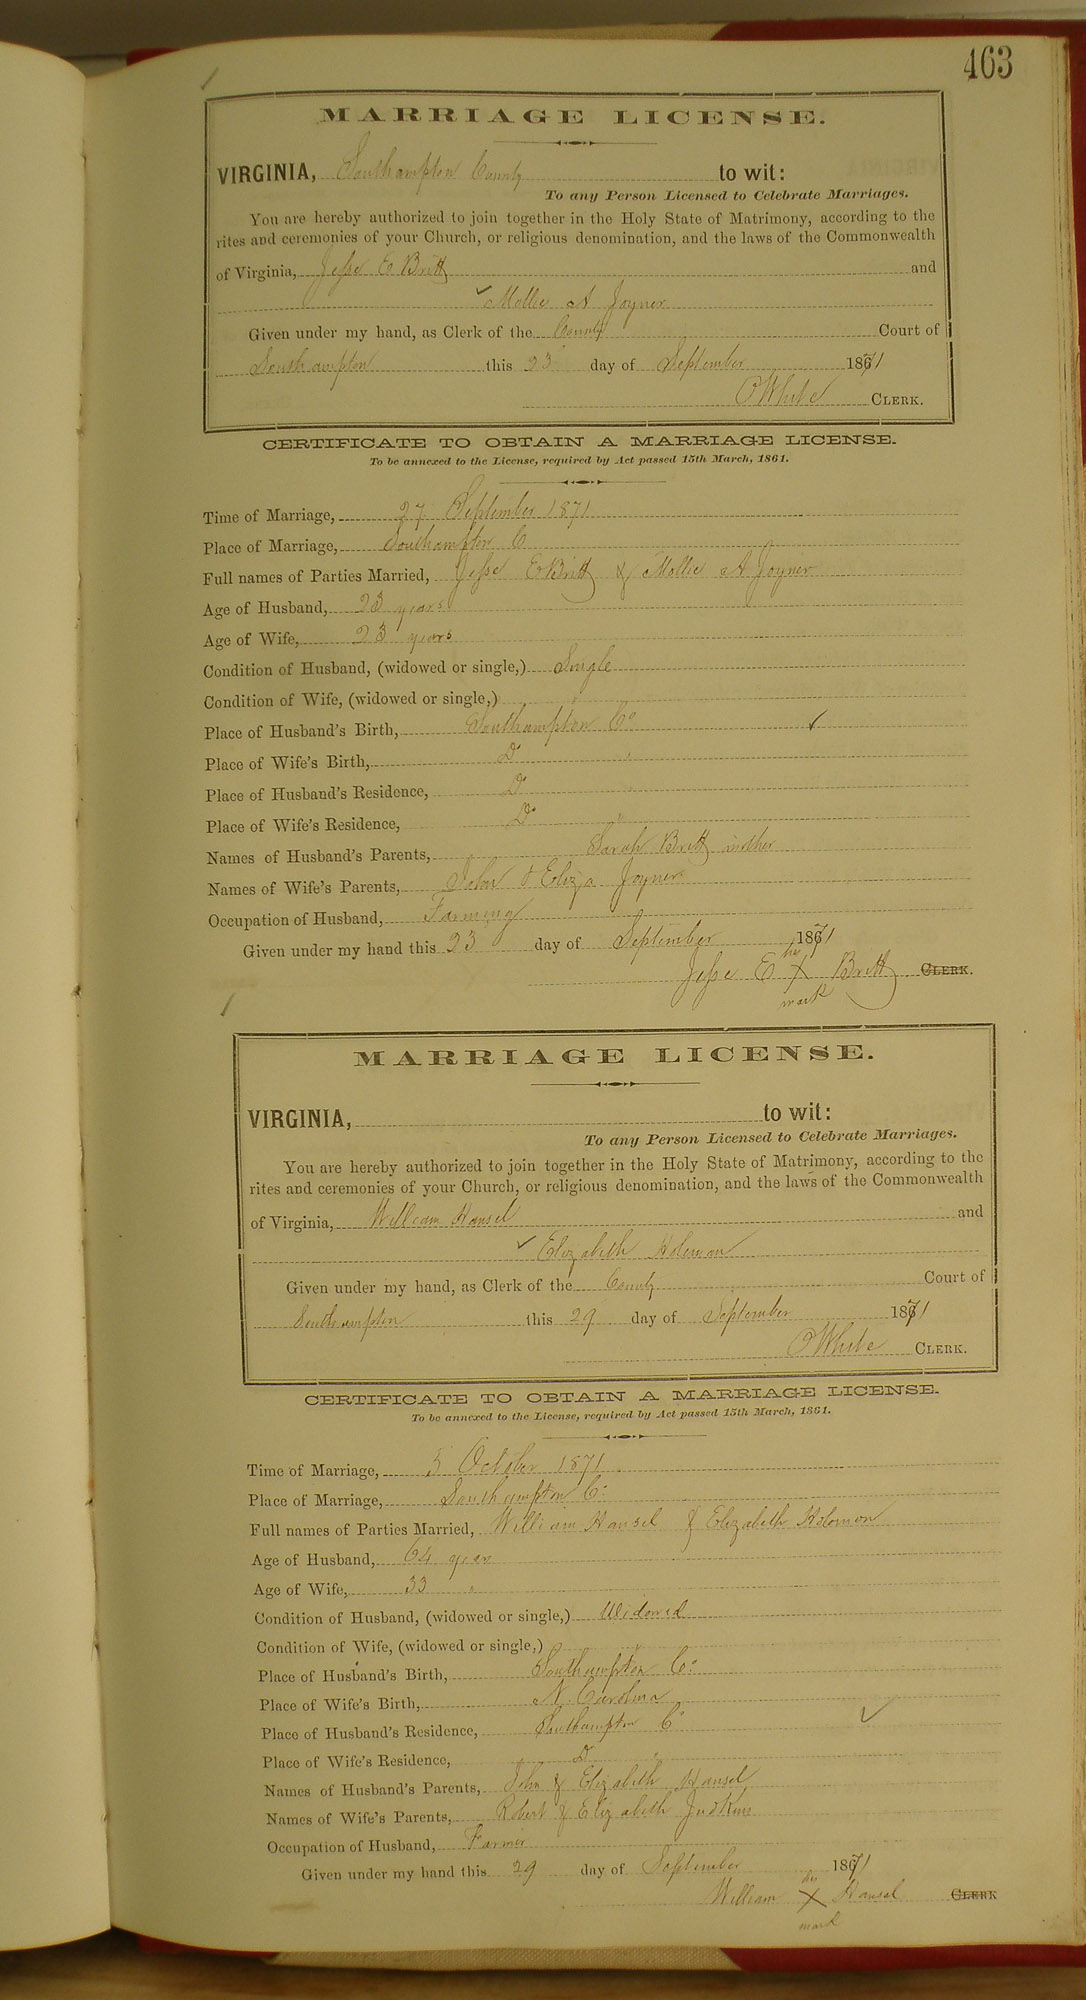 463
MARRIAGE LICENSE.
VIRGINIA, Southampton County to wit:
To any Person Licensed to Celebrate Marriages.
You are hereby authorized to join together in the Holy State of Matrimony, according to the
rites and ceremonies of your Church, or religious denomination, and the laws of the Commonwealth
of Virginia, Jesse E Britt and
Mollie A Joyner
Given under my hand, as Clerk of the County Court of
Southampton this 23 day of September 1871
White CLERK.
CERTIFICATE TO OBTAIN A MARRIAGE LICENSE.
To be annexed to the License, required by Act passed 15th March, 1861.
Time of Marriage, 27 September 1871
Place of Marriage, Southampton C
Full names of Parties Married, Jesse E Britt & Mollie A Joyner
Age of Husband, 23 years
Age of Wife, 23 years
Condition of Husband, (widowed or single,) Single
Condition of Wife, (widowed or single,) "
Place of Husband's Birth, Southampton Co
Place of Wife's Birth, Do "
Place of Husband's Residence, Do
Place of Wife's Residence, Do "
Names of Husband's Parents, Sarah Britt mother
Names of Wife's Parents, John & Eliza Joyner
Occupation of Husband, Farming
Given under my hand this 23 day of September 1871
his
Jesse E X Britt CLERK.
mark
MARRIAGE LICENSE.
VIRGINIA, to wit:
To any Person Licensed to Celebrate Marriages.
You are hereby authorized to join together in the Holy State of Matrimony, according to the
rites and ceremonies of your Church, or religious denomination, and the laws of the Commonwealth
of Virginia, William Hansel and
Elizabeth Holeman
Given under my hand, as Clerk of the County Court of
Southampton this 29 day of September 1871
White CLERK.
CERTIFICATE TO OBTAIN A MARRIAGE LICENSE.
To be annexed to the License, required by Act passed 15th March, 1861.
Time of Marriage, 5 October 1871
Place of Marriage, Southampton Co
Full names of Parties Married, William Hansel & Elizabeth Holemon
Age of Husband, 64 year
Age of Wife, 33 "
Condition of Husband, (widowed or single,) Widowed
Condition of Wife, (widowed or single,) "
Place of Husband's Birth, Southampton Co
Place of Wife's Birth, N. Carolina
Place of Husband's Residence, Southampton Co
Place of Wife's Residence, Do "
Names of Husband's Parents, John & Elizabeth Hansel
Names of Wife's Parents, Robert & Elizabeth Judkins
Occupation of Husband, Farmer
Given under my hand this 29 day of September 1871
his
William X Hansel CLERK
mark